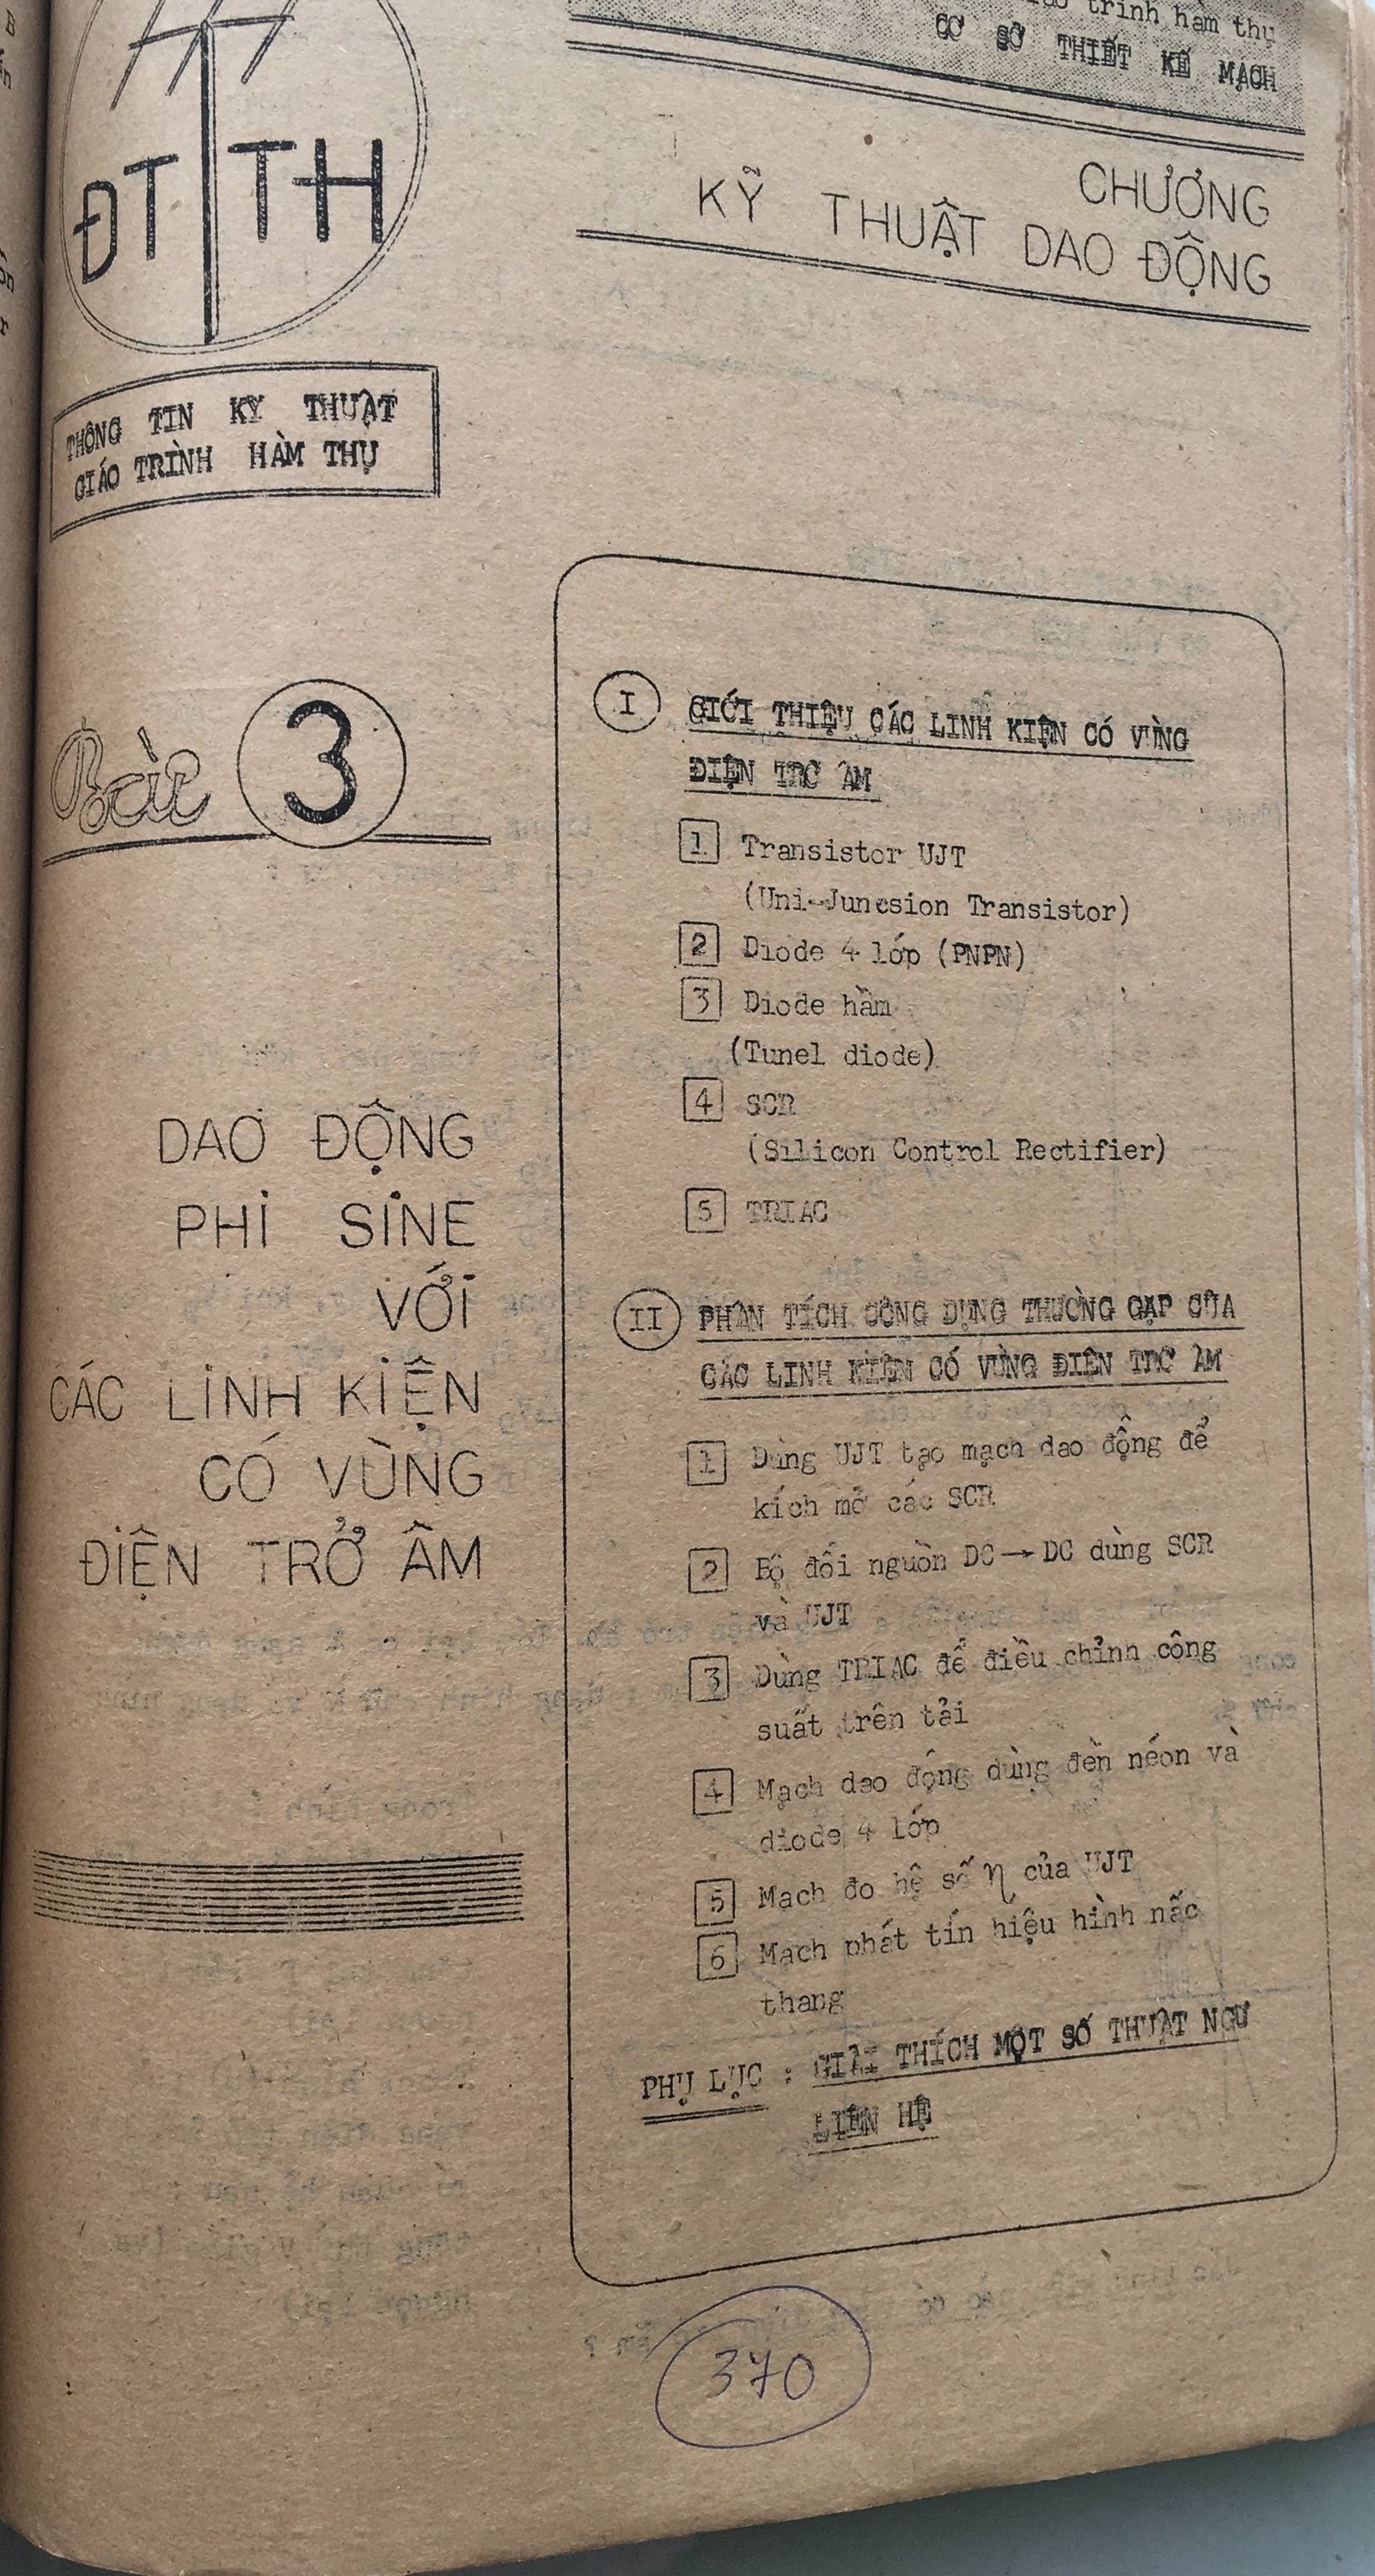 trình hàm thụ
CƠ SỞ THIẾT KẾ MẠCH
ĐT TH
CHƯƠNG
KỸ THUẬT DAO ĐỘNG
THÔNG TIN KỸ THUẬT
GIÁO TRÌNH HÀM THỤ
Bài 3
DAO ĐỘNG
PHI SINE
VỚI
CÁC LINH KIỆN
CÓ VÙNG
ĐIỆN TRỞ ÂM
I GIỚI THIỆU CÁC LINH KIỆN CÓ VÙNG
ĐIỆN TRỞ ÂM
1 Transistor UJT
(Uni-Juncsion Transistor)
2 Diode 4 lớp (PNPN)
3 Diode hầm
(Tunel diode)
4 SCR
(Silicon Control Rectifier)
5 TRIAC
II PHÂN TÍCH CÔNG DỤNG THƯỜNG GẶP CỦA
CÁC LINH KIỆN CÓ VÙNG ĐIỆN TRỞ ÂM
1 Dùng UJT tạo mạch dao động để
kích mở các SCR
2 Bộ đổi nguồn DC→DC dùng SCR
và UJT
3 Dùng TRIAC để điều chỉnh công
suất trên tải
4 Mạch dao động dùng đèn néon và
diode 4 lớp
5 Mạch đo hệ số η của UJT
6 Mạch phát tín hiệu hình nấc
thang
PHỤ LỤC : GIẢI THÍCH MỘT SỐ THUẬT NGỮ
LIÊN HỆ
370